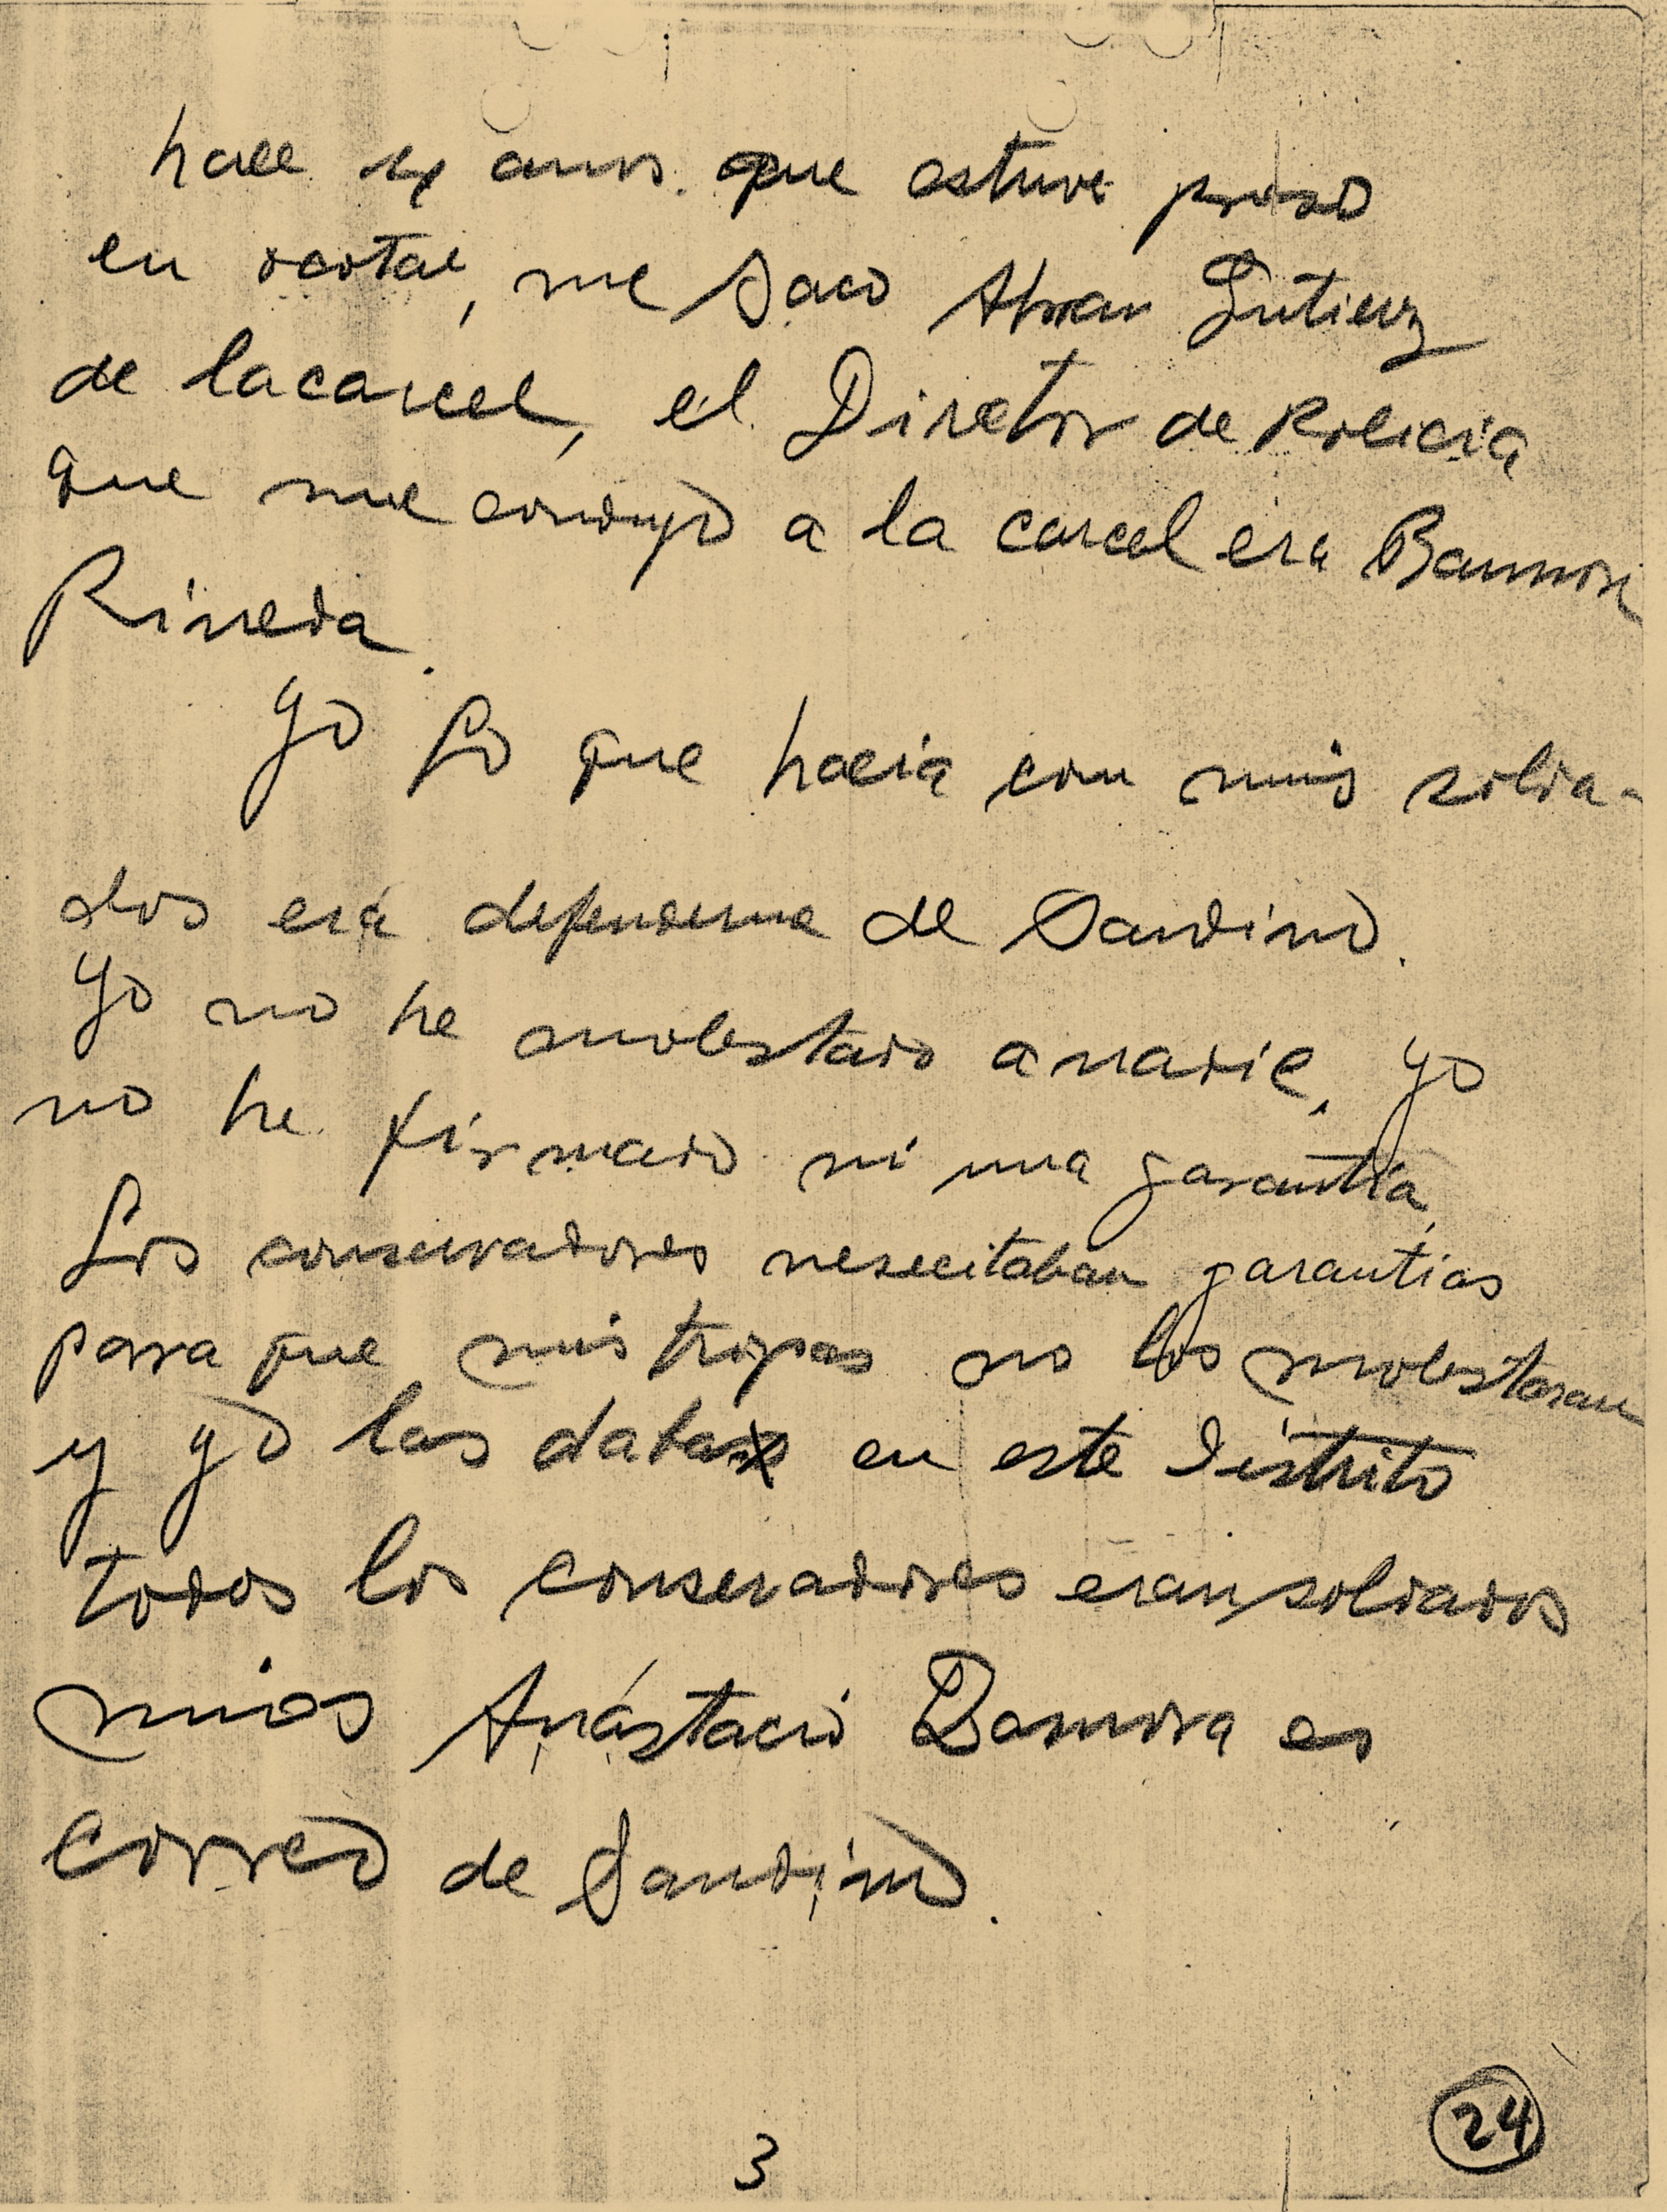 hace sey anos. que estuve preso
en ocotal, me Saco Abran Gutierrz
de lacarcel, el Diretor de Policia
que me condujo a la carcel era Ramon
Pineda.
Yo Lo que hacia con mis solda-
dos era defenderme de Sandino.
Yo no he molestado a nadie, yo
no he firmado ni una garantia,
Los conservadores nesecitaban garantias
para que mis tropas no los molestaran
y yo las daba en este Distrito
todos los conservadores eran soldados
mios Anástacio Zamora es
correo de Sandino.
3
24